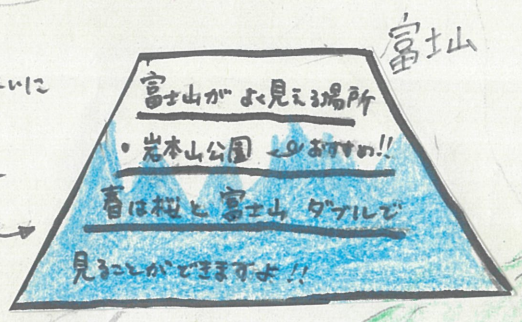 富士山
いに
富士山がよく見える場所
・岩本山公園 おすすめ!!
春は桜と富士山 ダブルで
見ることができますよ!!